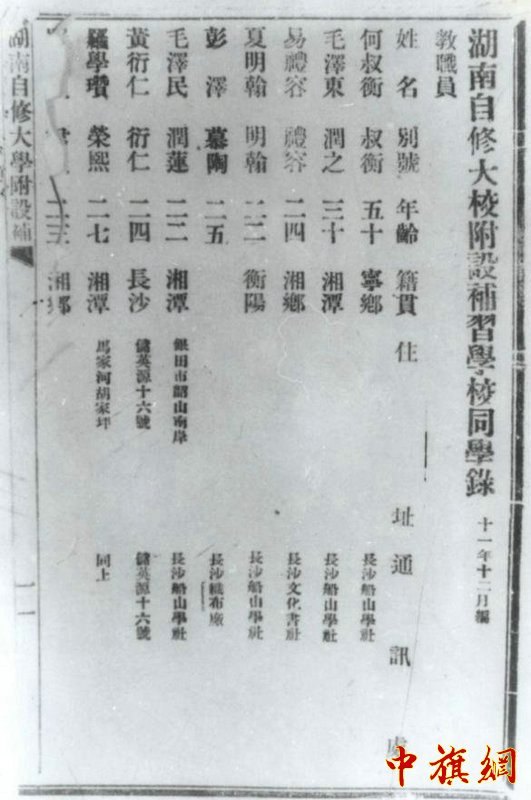 湖南自修大校附設補習學校同學錄 十一年十二月編
教職員
姓名 別號 年齡 籍貫 住址 通訊處
何叔衡 叔衡 五十 寧鄉 長沙船山學社
毛澤東 潤之 三十 湘潭 長沙船山學社
易禮容 禮容 二四 湘鄉 長沙文化書社
夏明翰 明翰 二二 衡陽 長沙船山學社
彭澤 慕陶 二五 長沙織布廠
毛澤民 潤蓮 二二 湘潭 銀田市韶山南岸 長沙船山學社
黃衍仁 衍仁 二四 長沙 儲英源十六號 儲英源十六號
羅學瓚 榮熙 二七 湘潭 馬家河胡家坪 同上
二三 湘鄉
湖南自修大學附設補
中旗網